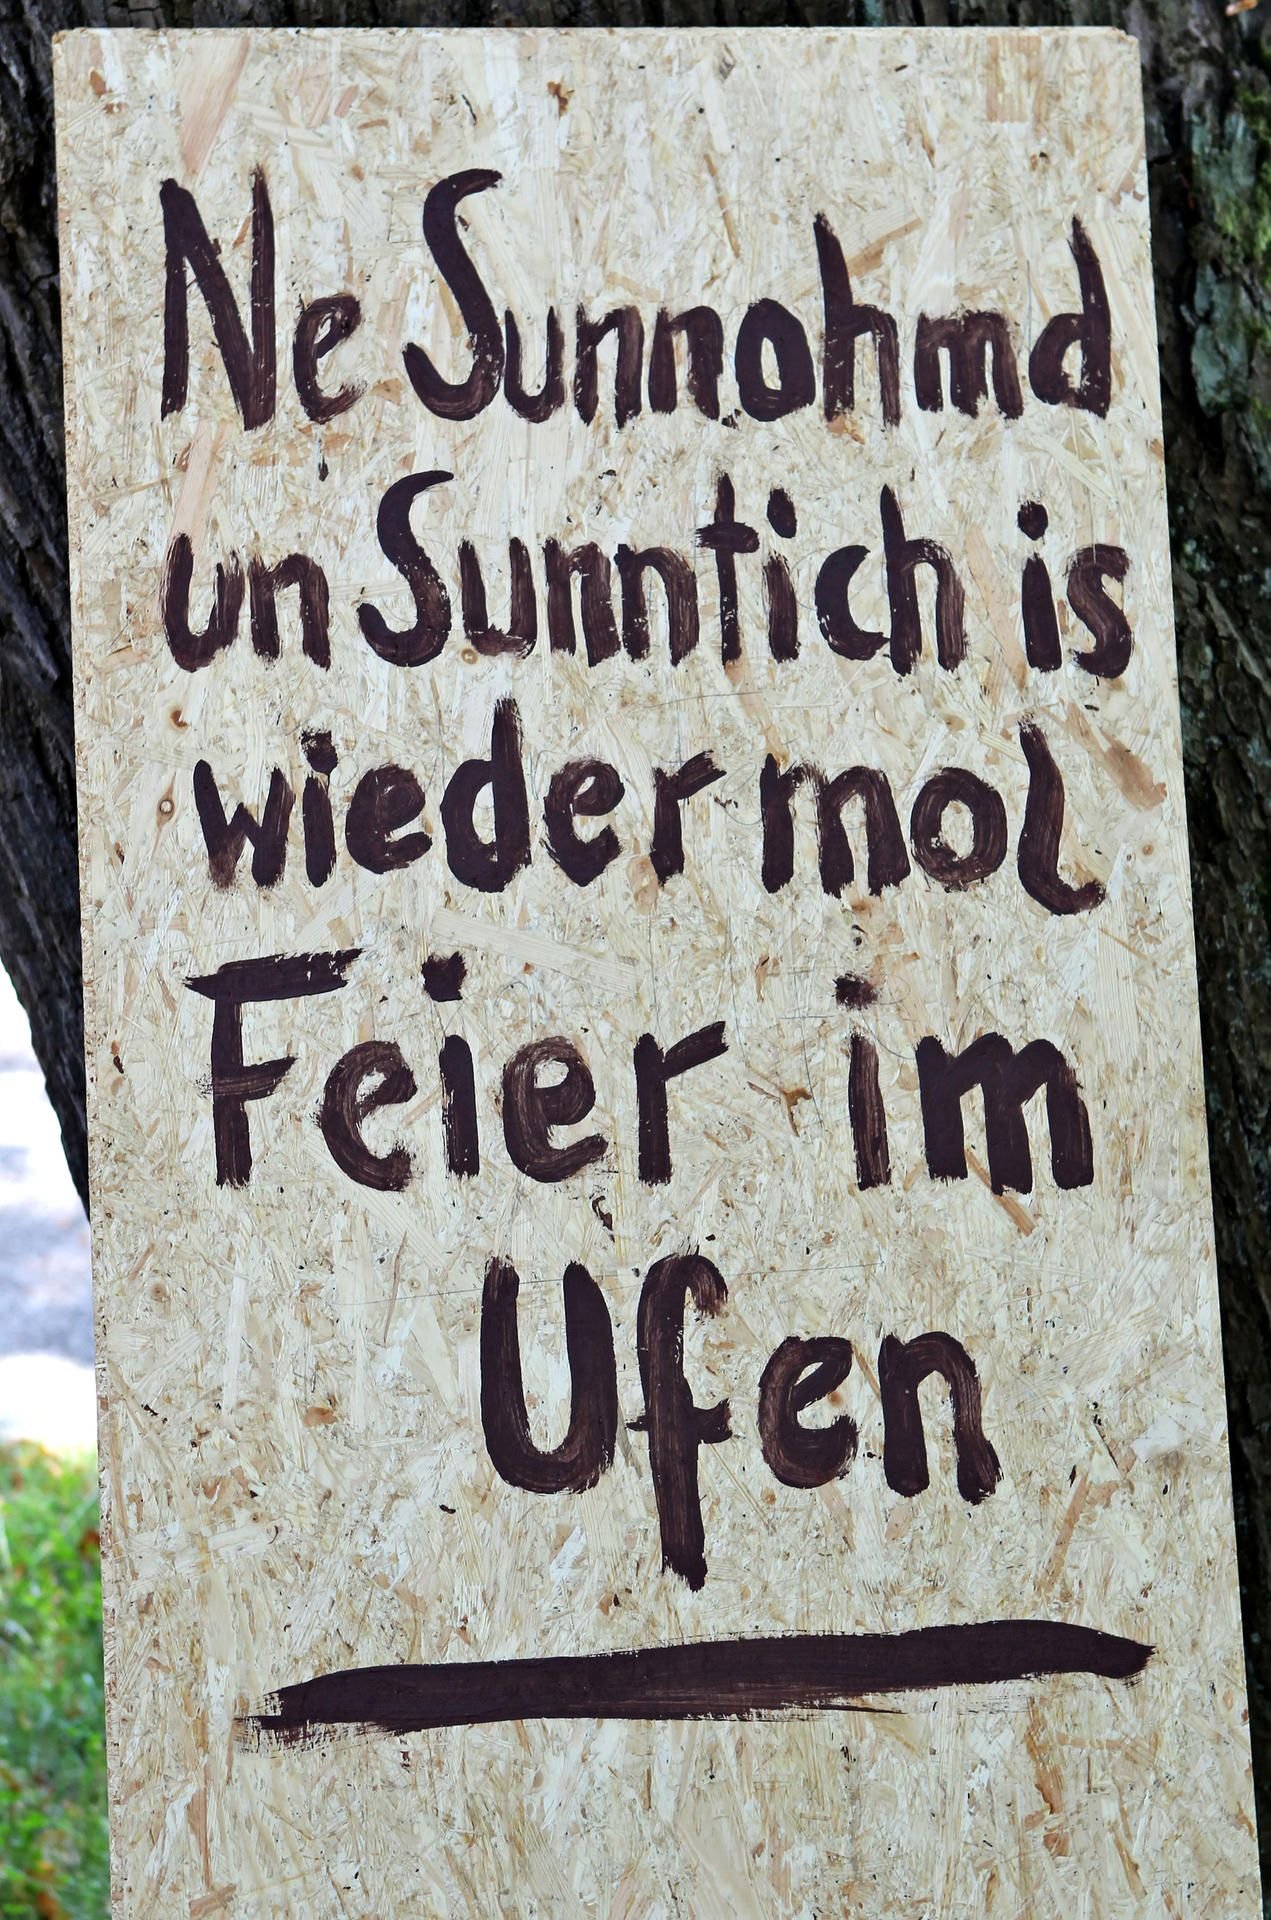 Ne Sunnohmd
un Sunntich is
wieder mol
Feier im
Ufen